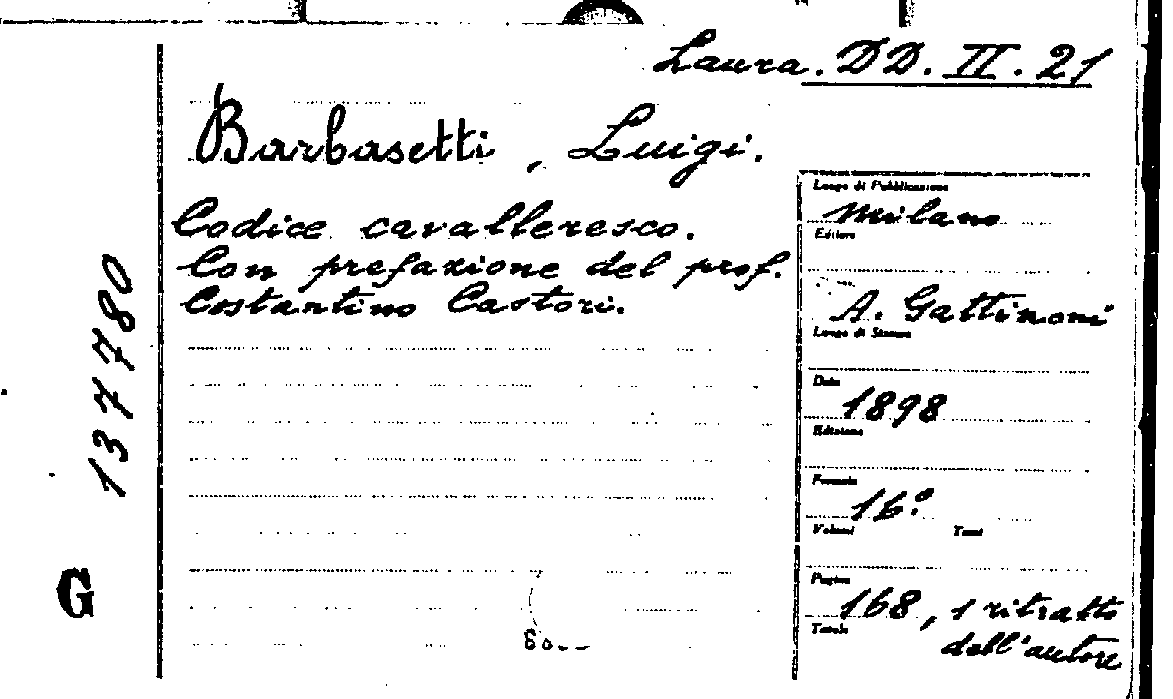 Laura. DD. II. 21
Barbasetti, Luigi.
Codice cavalleresco.
Con prefazione del prof.
Costantino Castori.
137780
G
Luogo di Pubblicazione
Milano
Editore
A. Gattinoni
Luogo di Stampa
Data
1898
Edizione
Formato
16º
Volumi Tomi
Pagine
168, 1 ritratto
dell'autore
Tavole